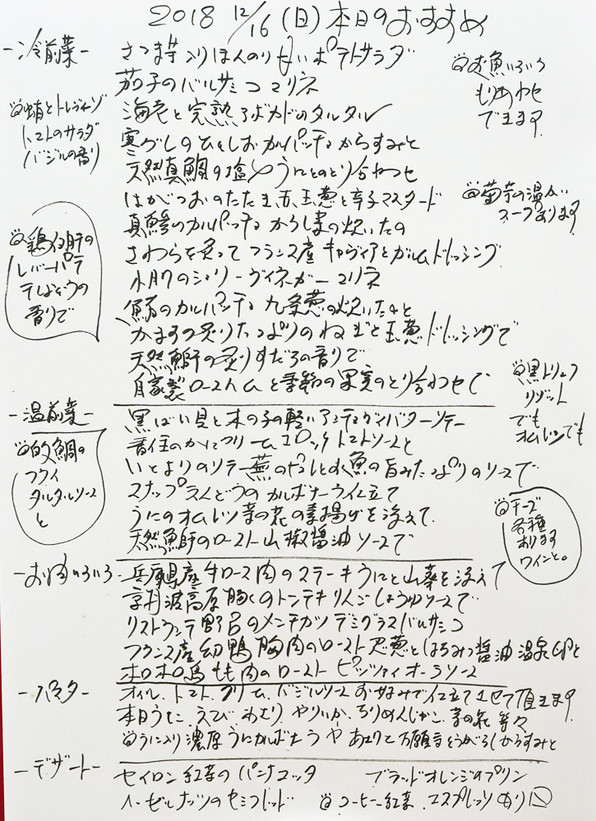 2018 12/16 (日) 本日のおすすめ
-冷前菜-
さつま芋入りほんのり甘いポテトサラダ
茄子のバルサミコマリネ
海老と完熟アボカドのタルタル
寒グレのひとしおカルパッチョからすみと
天然真鯛の塩〆うにとのとり合わせ
はがつおのたたき玉葱と辛子マスタード
真鯵のカルパッチョ
さわらを炙ってフランス産キャヴィアとガルムドレッシング
小肌のシェリーヴィネガーマリネ
カルパッチョ 九条葱の炊いたんと
かますの炙りたっぷりのねぎと玉葱ドレッシングで
天然鰤の炙りすだちの香りで
自家製ロースハムと季節の果実のとり合わせで
蛸とトレヴィーゾ
トマトのサラダ
バジルの香り
鶏白肝の
レバーパテ
てばそうの
香りで
お魚いろいろ
もりあわせ
できます
菊芋の温かい
スープあります
黒トリュフ
リゾット
でも
オムレツでも
-温前菜-
黒ばい貝と木の子の軽いアンティヴバターソテー
香住のかにクリームコロッケトマトソースと
いとよりのソテー蕪のピューレと魚の旨みたっぷりのソースで
スナップえんどうのカルボナーラ仕立て
うにのオムレツ菜の花の素揚げを添えて
天然鰤のロースト山椒醤油ソースで
的鯛の
フライ
タルタルソース
と
チーズ
各種
あります
ワインと。
-お肉いろいろ-
兵庫県産牛ロース肉のステーキうにと山葵を添えて
京丹波高原豚くのトンテキりんごしょうゆソースで
リストランテ野呂のメンチカツデミグラスバルサミコ
フランス産幼鴨胸肉のロースト葱とはちみつ醤油温泉卵と
ホロホロ鳥もも肉のローストピッツァイオーラソース
-パスタ-
オイル、トマト、クリーム、バジルソースお好みで仕立てさせて頂きます
本日うに、えび、あさり、やりいか、ちりめんじゃこ、菜の花等々
うに入り濃厚うにかるぼなーらや あさりと万願寺とうがらしからすみと
-デザート-
セイロン紅茶のパンナコッタ
ブラッドオレンジのプリン
ヘーゼルナッツのセミフレッド
コーヒー紅茶、エスプレッソあり〼